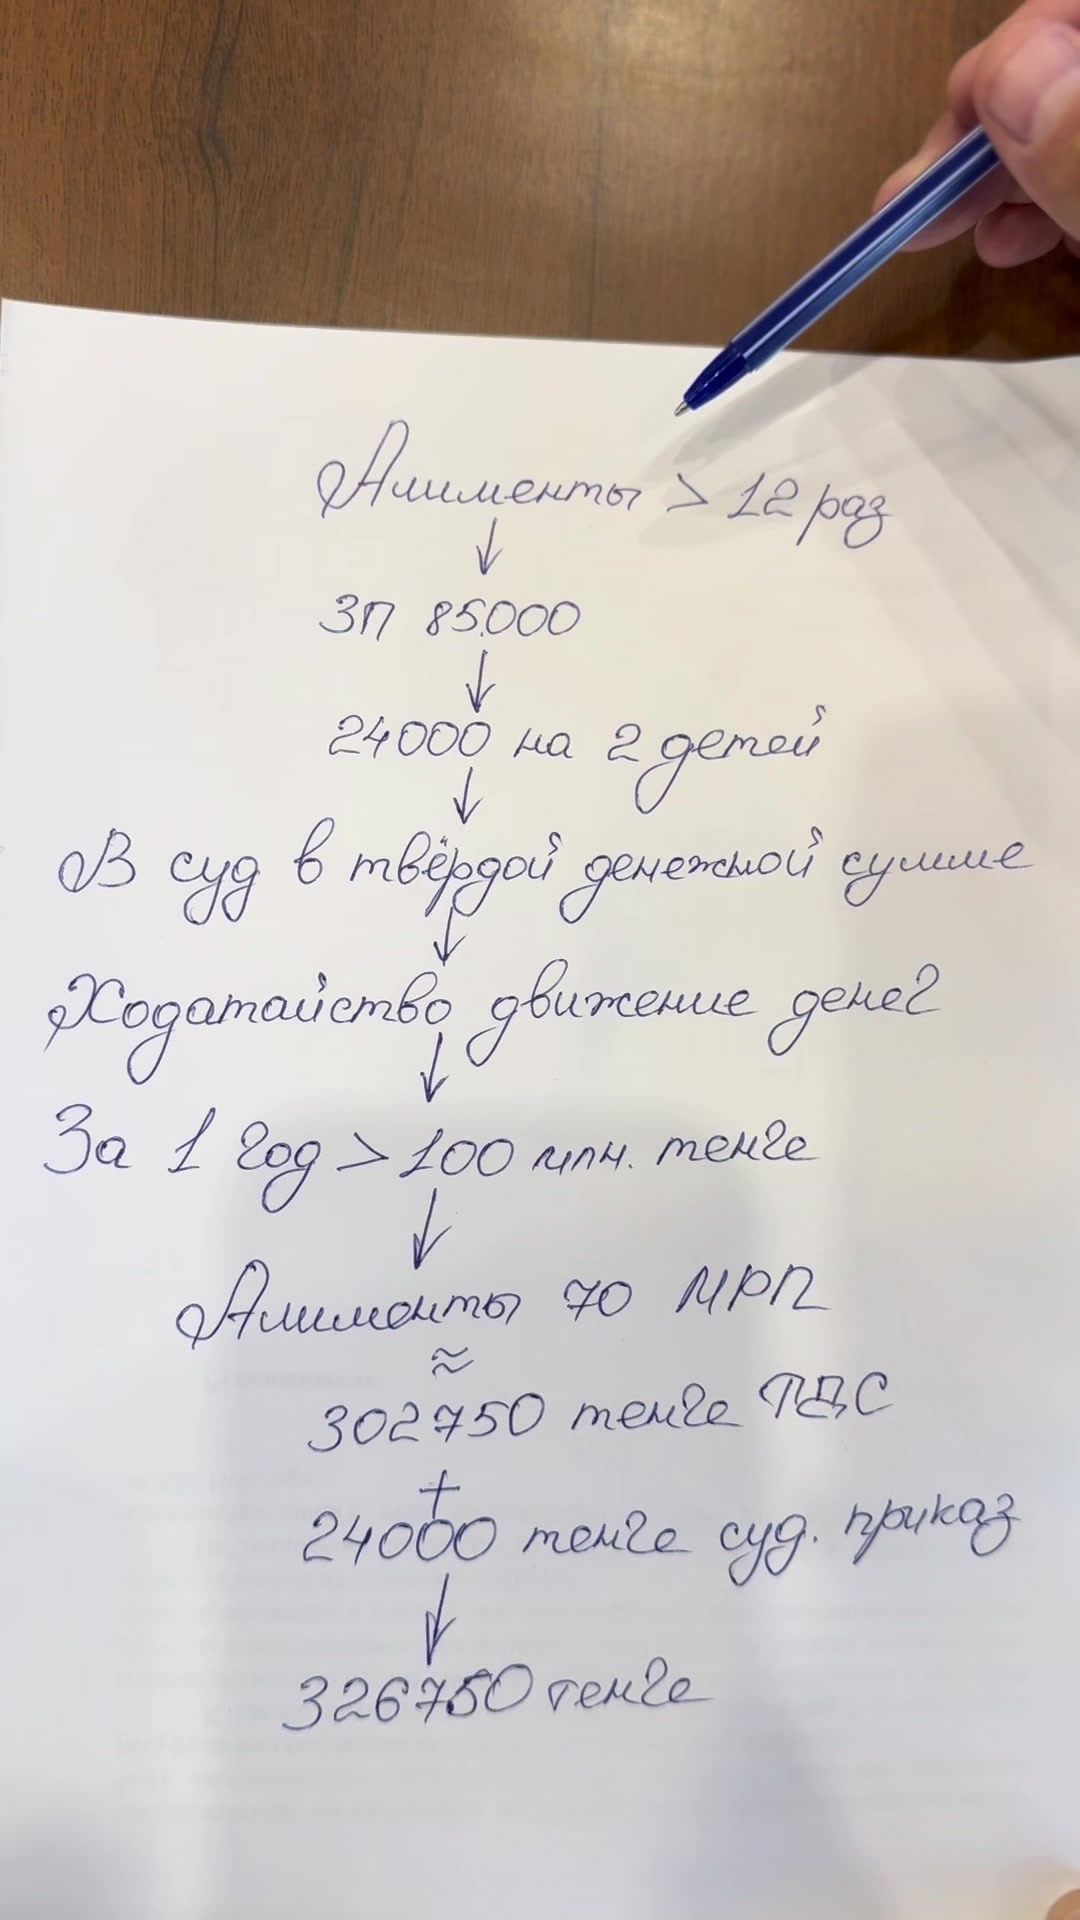 Алименты > 12 раз
ЗП 85.000
24000 на 2 детей
В суд в твёрдой денежной сумме
Ходатайство движение денег
За 1 год > 100 млн. тенге
Алименты 70 МРП
≈
302750 тенге ТДС
+
24000 тенге суд. приказ
326750 тенге